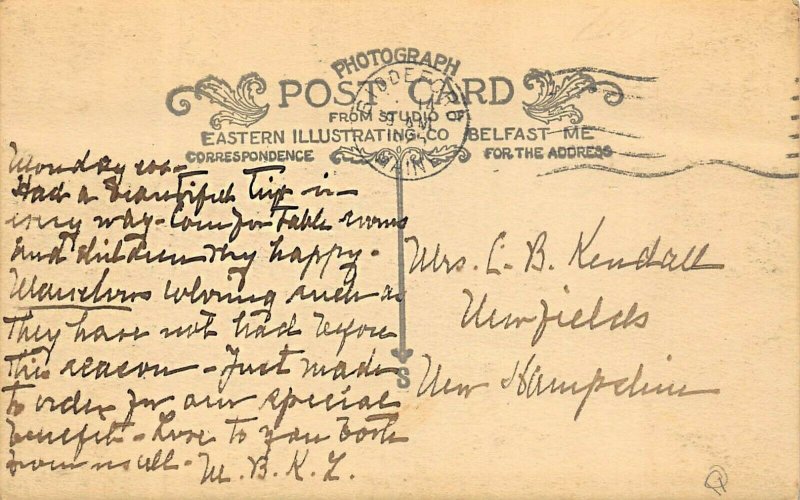 PHOTOGRAPH
POST CARD
FROM STUDIO
EASTERN ILLUSTRATING CO BELFAST ME
CORRESPONDENCE
FOR THE ADDRESS
BIDDEFORD
14
9 AM
MAINE
Monday eve-
Had a beautiful trip in
every way - Comfortable rooms
and children very happy.
Marvelous coloring such as
they have not had before
this season - Just made
to order for our special
benefit - Love to you both
from us all. M. B. K. L.
Mrs. L. B. Kendall
Newfields
New Hampshire